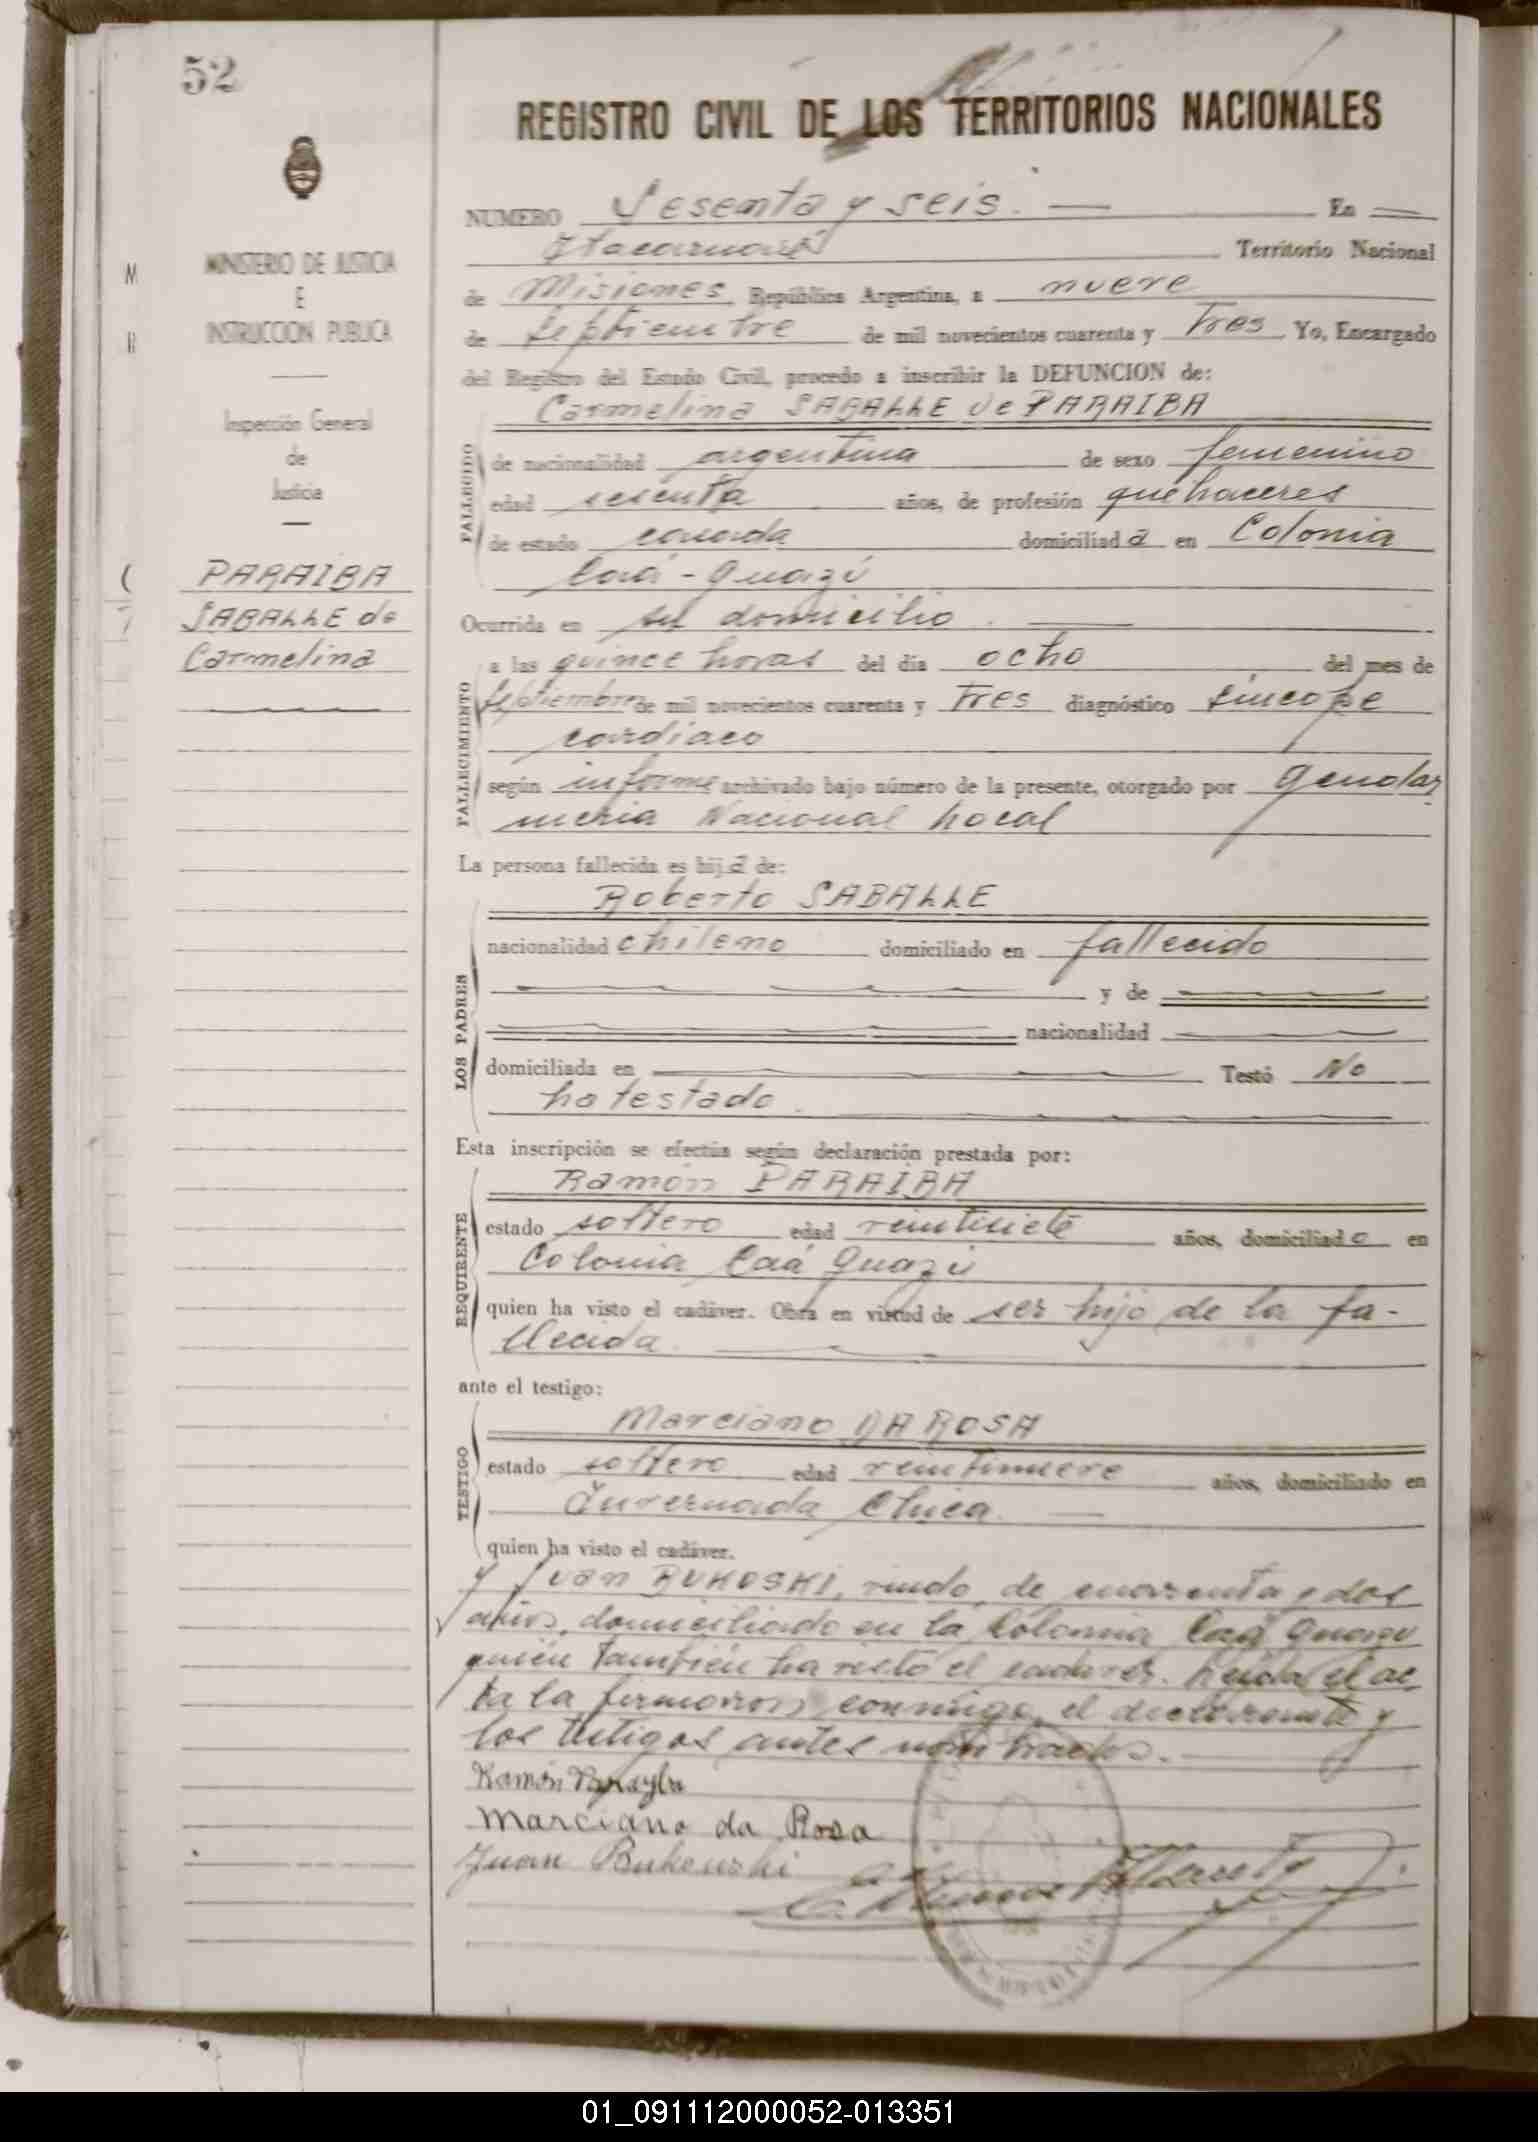 52
REGISTRO CIVIL DE LOS TERRITORIOS NACIONALES
MINISTERIO DE JUSTICIA
E
INSTRUCCION PUBLICA
Inspección General
de
Justicia
PARAIBA
SABALLE de
Carmelina
NUMERO Sesenta y seis. En
Itacaruaré Territorio Nacional
de Misiones República Argentina, a nueve
de Septiembre de mil novecientos cuarenta y Tres Yo, Encargado
del Registro del Estado Civil, procedo a inscribir la DEFUNCION de:
Carmelina SABALLE de PARAIBA
FALLECIDO
de nacionalidad argentina de sexo femenino
edad sesenta años, de profesión quehaceres
de estado casada domiciliada en Colonia
Caá-Guazú
Ocurrida en su domicilio.
FALLECIMIENTO
a las quince horas del día ocho del mes de
Septiembre de mil novecientos cuarenta y Tres diagnóstico síncope
cardiaco
según informe archivado bajo número de la presente, otorgado por Gendar
meria Nacional Local
La persona fallecida es hija de:
Roberto SABALLE
LOS PADRES
nacionalidad chileno domiciliado en fallecido
y de
nacionalidad
domiciliada en Testó No
ha testado.
Esta inscripción se efectúa según declaración prestada por:
Ramón PARAIBA
REQUIRENTE
estado soltero edad veintisiete años, domiciliado en
Colonia Caá Guazú
quien ha visto el cadáver. Obra en virtud de ser hijo de la fa-
llecida.
ante el testigo:
Marciano DA ROSA
TESTIGO
estado soltero edad veintinueve años, domiciliado en
Invernada Chica.
quien ha visto el cadáver.
y Juan BUKOSKI, viudo, de cuarenta y dos
años, domiciliado en la Colonia Caá Guazú
quien también ha visto el cadáver. Leída el ac
ta la firmaron conmigo, el declarante y
los testigos antes nombrados.
Ramón Parayba
Marciano da Rosa
Juan Bukouski
01_091112000052-013351